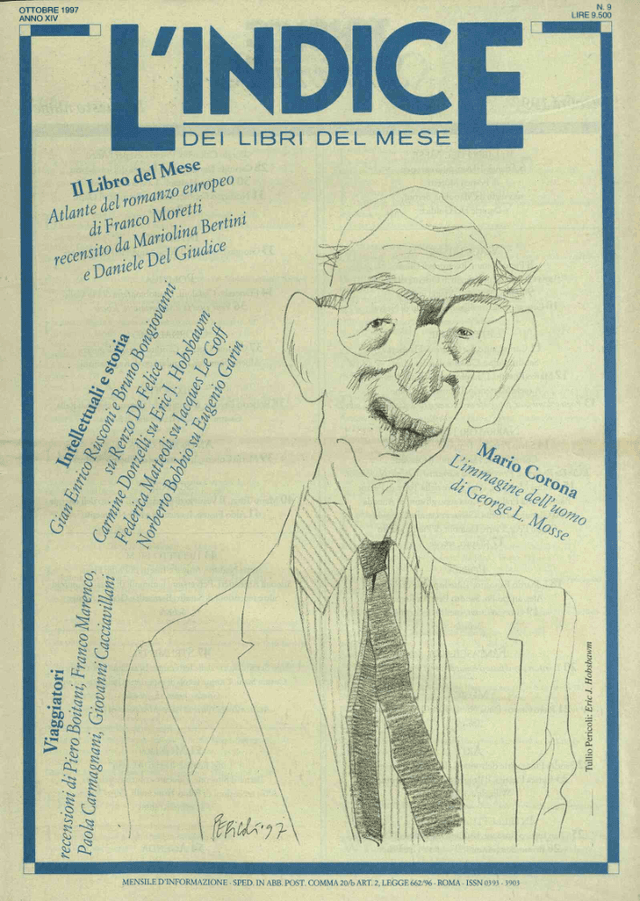 OTTOBRE 1997
ANNO XIV
N. 9
LIRE 9.500
L'INDICE
DEI LIBRI DEL MESE
Il Libro del Mese
Atlante del romanzo europeo
di Franco Moretti
recensito da Mariolina Bertini
e Daniele Del Giudice
Intellettuali e storia
Gian Enrico Rusconi e Bruno Bongiovanni
su Renzo De Felice
Carmine Donzelli su Eric J. Hobsbawm
Federica Matteoli su Jacques Le Goff
Norberto Bobbio su Eugenio Garin
Mario Corona
L'immagine dell'uomo
di George L. Mosse
Viaggiatori
recensioni di Piero Boitani, Franco Marenco,
Paola Carmagnani, Giovanni Cacciavillani
Tullio Pericoli: Eric J. Hobsbawm
PERICOLI '97
MENSILE D'INFORMAZIONE - SPED. IN ABB. POST. COMMA 20/b ART. 2, LEGGE 662/96 - ROMA - ISSN 0393 - 3903